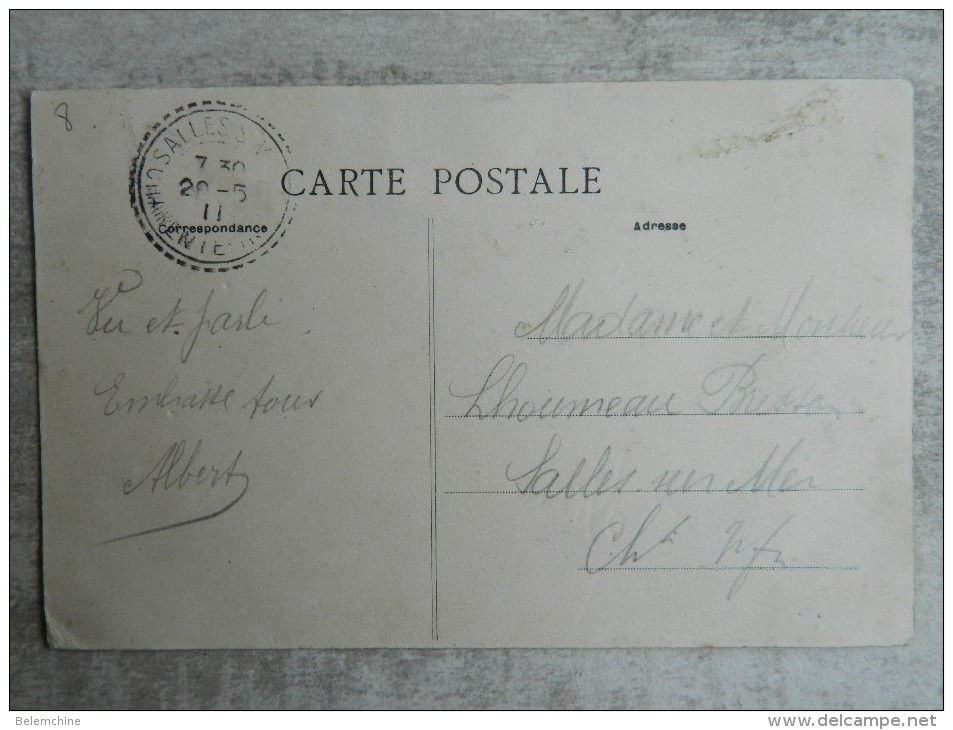 8
SALLES S. M
7 30
29-5
11
CHARENTE INF
CARTE POSTALE
Correspondance
Adresse
Vu et parlé
Embrasse tous
Albert
Madame et Monsieur
Lhoumeau
Salles sur Mer
Chte Infre
Belemchine
www.delcampe.net